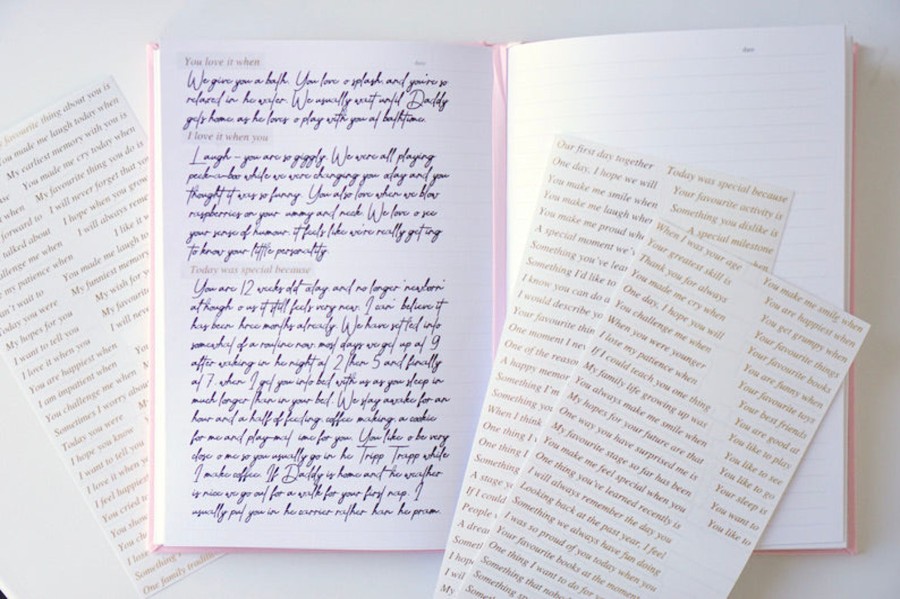 favourite thing about you is
You made me laugh today when
My earliest memory with you is
You made me cry today when
My favourite thing you do is
I will never forget that you
I hope when you grow
I will always remem
forward to
talked about
challenge me when
my patience when
You made me laugh to
My funniest memory
My wish for y
My favourite
I will neve
Today you were
My hopes for you
I want to tell you
I love it when you
You are happiest when
I am impatient when
You challenge me when
Sometimes I worry about
Today you were
I hope you know
I want to tell you
I love it when you
I feel happiest
You cried t
Something
One family traditi
You love it when
date
We give you a bath. You love o splash, and you're so
relaxed in he water. We usually wait until Daddy
gets home as he loves o play with you at bathtime.
I love it when you
Laugh - you are so giggly. We were all playing
peek-a-boo while we were changing you oday and you
thought it was so funny. You also love when we blow
raspberries on your ummy and neck. We love o see
your sense of humour, it feels like we're really getting
to know your little personality.
Today was special because
You are 12 weeks old oday and no longer 'newborn'
although o us it still feels very new. I can' believe it
has been hree months already. We have set led into
somewhat of a routine now, most days we get up at 9
after waking in he night at 2, hen 5 and finally
at 7, when I get you into bed with us as you sleep in
much longer than in your bed. We stay awake for an
hour and a half of feeding, coffee making, a cookie
for me and play-mat ime for you. You like o be very
close o me so you usually go in he Tripp Trapp while
I make coffee. If Daddy is home and he weather
is nice we go out for a walk for your first nap. I
usually put you in he carrier rather han he pram.
date
Our first day together
One day, I hope we will
You make me smile when
You make me laugh when
You make me proud whe
A special moment we'
Something you've lea
Something I'd like to
I know you can do a
I would describe yo
Your favourite thin
One moment I nev
One of the reason
A happy memor
Something I'm
Something you
When I think
One thing I
Something
A stage y
If I could
People
A drea
I hope
I wil
My
Today was special because
Your favourite activity is
Something you dislike is
A special milestone
When I was your age
Your greatest skill is
Thank you for always
You made me cry when
One day, I hope you will
You challenge me when
When you were younger
I lose my patience when
If I could teach you one thing
My family life growing up was
You always make me smile when
My hopes for your future are that
One way you have surprised me is
My favourite stage so far has been
You make me feel special when you
One thing you've learned recently is
I will always remember the day you
Looking back at the past year, I feel
Something we always have fun doing
I was so proud of you today when you
Your favourite books at the moment are
One thing I want to do for you
Something that nobo
Something
You make me smile when
You are happiest when
You get grumpy when
Your favourite things
Your favourite books
You are funny when
Your favourite toys
Your best friends
You are good at
You like to play
You like to see
You like to go
Your sleep is
You want to
You like to